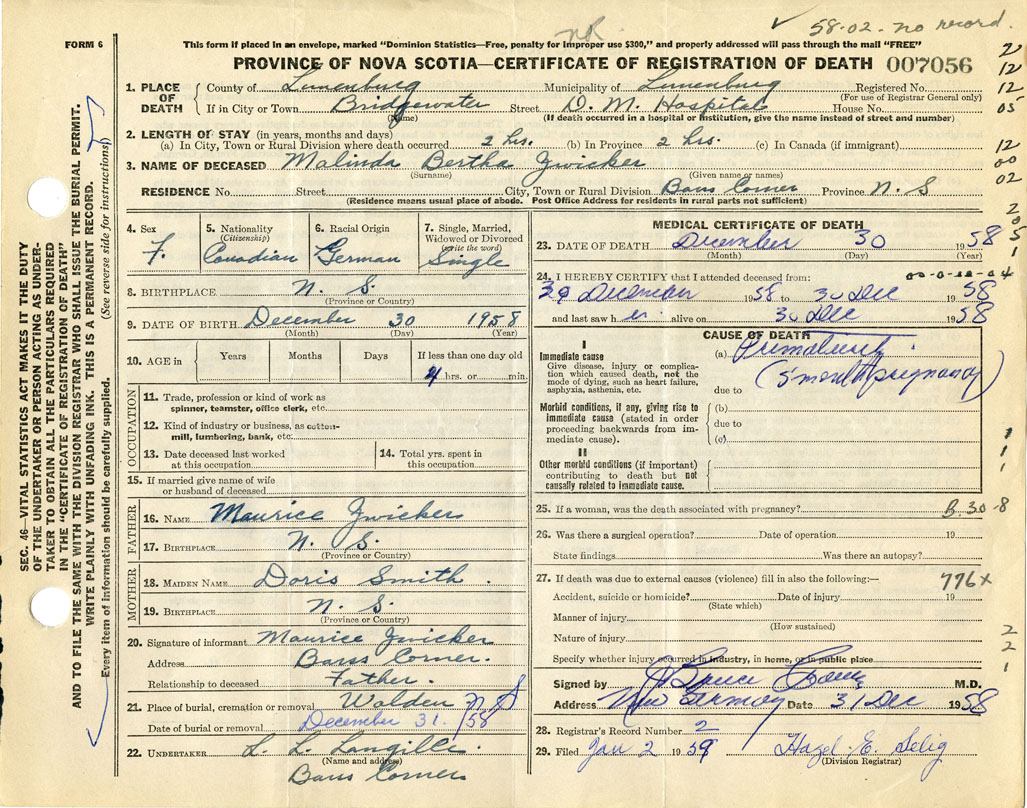 58-02. no record.
NR
FORM 6
This form if placed in an envelope, marked "Dominion Statistics—Free, penalty for improper use $300," and properly addressed will pass through the mail "FREE"
PROVINCE OF NOVA SCOTIA—CERTIFICATE OF REGISTRATION OF DEATH 007056
1. PLACE OF DEATH
County of Lunenburg Municipality of Lunenburg Registered No.
(For use of Registrar General only)
If in City or Town Bridgewater Street D. M. Hospital House No.
(Name) (If death occurred in a hospital or institution, give the name instead of street and number)
2. LENGTH OF STAY (in years, months and days)
(a) In City, Town or Rural Division where death occurred 2 hrs. (b) In Province 2 hrs. (c) In Canada (if immigrant)
3. NAME OF DECEASED Malinda Bertha Zwicker
(Surname) (Given name or names)
RESIDENCE No. Street City, Town or Rural Division Barss Corner Province N. S
(Residence means usual place of abode. Post Office Address for residents in rural parts not sufficient)
4. Sex
F.
5. Nationality
(Citizenship)
Canadian
6. Racial Origin
German
7. Single, Married, Widowed or Divorced
(write the word)
Single
8. BIRTHPLACE N. S.
(Province or Country)
9. DATE OF BIRTH December 30 1958
(Month) (Day) (Year)
10. AGE in
Years Months Days If less than one day old
hrs. or min.
OCCUPATION
11. Trade, profession or kind of work as
spinner, teamster, office clerk, etc.
12. Kind of industry or business, as cotton-
mill, lumbering, bank, etc.
13. Date deceased last worked
at this occupation
14. Total yrs. spent in
this occupation
15. If married give name of wife
or husband of deceased
FATHER
16. NAME Maurice Zwicker
17. BIRTHPLACE N. S.
(Province or Country)
MOTHER
18. MAIDEN NAME Doris Smith.
19. BIRTHPLACE N. S.
(Province or Country)
20. Signature of informant Maurice Zwicker
Address Barss Corner.
Relationship to deceased Father.
21. Place of burial, cremation or removal Walden N S
Date of burial or removal December 31. /58
22. UNDERTAKER L. L. Langille.
(Name and address)
Barss Corner
MEDICAL CERTIFICATE OF DEATH
23. DATE OF DEATH December 30 1958
(Month) (Day) (Year)
24. I HEREBY CERTIFY that I attended deceased from:
December 1958 to 30 Dec 1958
and last saw her alive on 30 Dec 1958
CAUSE OF DEATH
I
Immediate cause
Give disease, injury or complica-
tion which caused death, not the
mode of dying, such as heart failure,
asphyxia, asthenia, etc.
(a) Prematurity.
(5 month pregnancy)
due to
Morbid conditions, if any, giving rise to
immediate cause (stated in order
proceeding backwards from im-
mediate cause).
(b)
due to
(c)
II
Other morbid conditions (if important)
contributing to death but not
causally related to immediate cause.
25. If a woman, was the death associated with pregnancy? B.30-8
26. Was there a surgical operation? Date of operation 19
State findings Was there an autopsy?
27. If death was due to external causes (violence) fill in also the following:— 776x
Accident, suicide or homicide? Date of injury 19
(State which)
Manner of injury
(How sustained)
Nature of injury
Specify whether injury occurred in industry, in home, or in public place
Signed by M.D.
Address New Germany Date 31 Dec 1958
28. Registrar's Record Number 2
29. Filed Jan 2 1959 Hazel E. Selig
(Division Registrar)
SEC. 46—VITAL STATISTICS ACT MAKES IT THE DUTY
OF THE UNDERTAKER OR PERSON ACTING AS UNDER-
TAKER TO OBTAIN ALL THE PARTICULARS REQUIRED
IN THE "CERTIFICATE OF REGISTRATION OF DEATH"
AND TO FILE THE SAME WITH THE DIVISION REGISTRAR WHO SHALL ISSUE THE BURIAL PERMIT.
WRITE PLAINLY WITH UNFADING INK. THIS IS A PERMANENT RECORD.
Every item of information should be carefully supplied. (See reverse side for instructions)
12
12
05
12
00
02
2
5
1
1
1
1
2
2
1